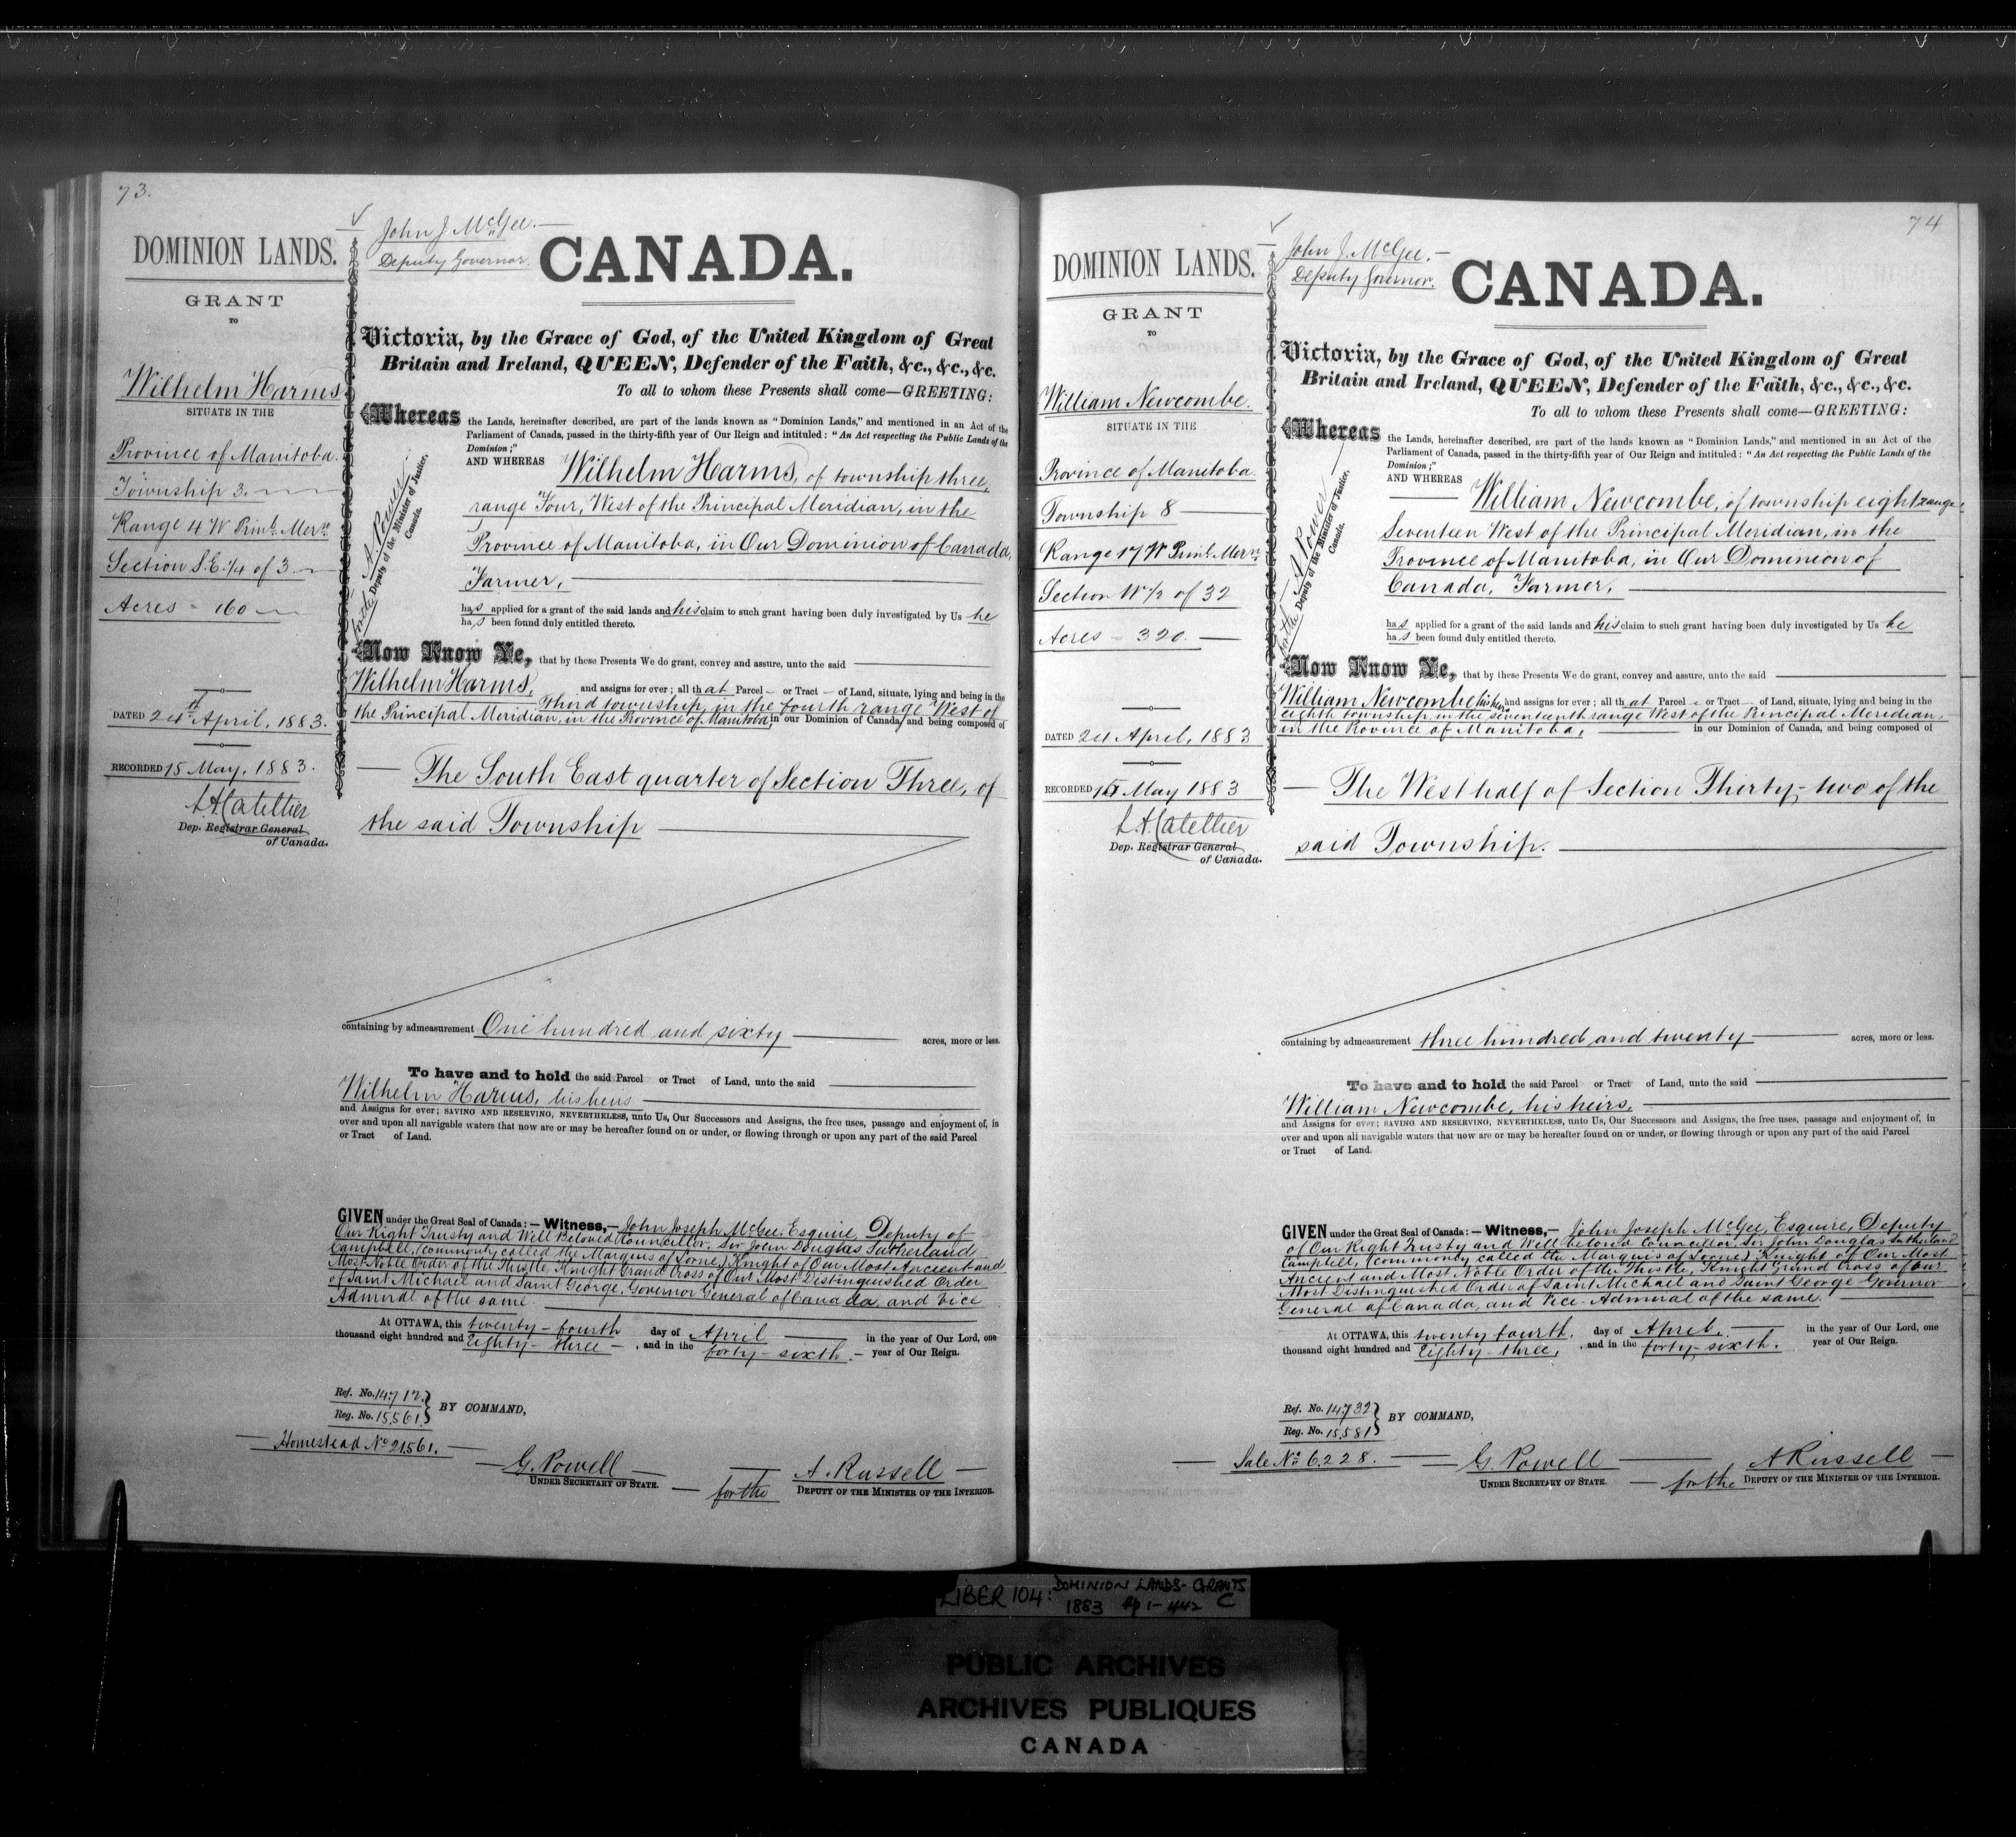 73.
DOMINION LANDS.
GRANT
TO
Wilhelm Harms
SITUATE IN THE
Province of Manitoba.
Township 3.
Range 4 W Prinl. Mern.
Section S.E. 1/4 of 3
Acres - 160
DATED 24th April, 1883.
RECORDED 15 May, 1883.
L.A. Catellier
Dep. Registrar General
of Canada.
John J. McGee.
Deputy Governor.
for the A. Power
Deputy of the Minister of Justice,
Canada.
CANADA.
Victoria, by the Grace of God, of the United Kingdom of Great
Britain and Ireland, QUEEN, Defender of the Faith, &c., &c., &c.
To all to whom these Presents shall come—GREETING:
Whereas the Lands, hereinafter described, are part of the lands known as "Dominion Lands," and mentioned in an Act of the
Parliament of Canada, passed in the thirty-fifth year of Our Reign and intituled: "An Act respecting the Public Lands of the
Dominion;"
AND WHEREAS Wilhelm Harms, of township three,
range Four, West of the Principal Meridian, in the
Province of Manitoba, in Our Dominion of Canada,
Farmer,
has applied for a grant of the said lands and his claim to such grant having been duly investigated by Us he
has been found duly entitled thereto.
Now Know Ye, that by these Presents We do grant, convey and assure, unto the said
Wilhelm Harms, and assigns for ever; all that Parcel or Tract of Land, situate, lying and being in the
Third township, in the fourth range West of
the Principal Meridian, in the Province of Manitoba, in our Dominion of Canada, and being composed of
The South East quarter of Section Three, of
the said Township
containing by admeasurement One hundred and sixty acres, more or less.
To have and to hold the said Parcel or Tract of Land, unto the said
Wilhelm Harms, his heirs
and Assigns for ever; SAVING AND RESERVING, NEVERTHELESS, unto Us, Our Successors and Assigns, the free uses, passage and enjoyment of, in
over and upon all navigable waters that now are or may be hereafter found on or under, or flowing through or upon any part of the said Parcel
or Tract of Land.
GIVEN under the Great Seal of Canada:—Witness,—John Joseph McGee, Esquire, Deputy of
Our Right Trusty and Well Beloved Councillor, Sir John Douglas Sutherland
Campbell, (commonly called the Marquis of Lorne) Knight of Our Most Ancient and
Most Noble Order of the Thistle, Knight Grand Cross of Our Most Distinguished Order
of Saint Michael and Saint George, Governor General of Canada, and Vice
Admiral of the same.
At OTTAWA, this twenty-fourth day of April in the year of Our Lord, one
thousand eight hundred and Eighty-three, and in the forty-sixth year of Our Reign.
Ref. No. 14712.
Reg. No. 15561.
BY COMMAND,
Homestead No 21561.
G. Powell
UNDER SECRETARY OF STATE.
A. Russell
for the DEPUTY OF THE MINISTER OF THE INTERIOR.
74
DOMINION LANDS.
GRANT
TO
William Newcombe.
SITUATE IN THE
Province of Manitoba
Township 8
Range 17 W Prinl. Mern.
Section W 1/2 of 32
Acres - 320.
DATED 24 April, 1883
RECORDED 15 May 1883
L.A. Catellier
Dep. Registrar General
of Canada.
John J. McGee.
Deputy Governor.
for the A. Power
Deputy of the Minister of Justice,
Canada.
CANADA.
Victoria, by the Grace of God, of the United Kingdom of Great
Britain and Ireland, QUEEN, Defender of the Faith, &c., &c., &c.
To all to whom these Presents shall come—GREETING:
Whereas the Lands, hereinafter described, are part of the lands known as "Dominion Lands," and mentioned in an Act of the
Parliament of Canada, passed in the thirty-fifth year of Our Reign and intituled: "An Act respecting the Public Lands of the
Dominion;"
AND WHEREAS William Newcombe, of township eight range
Seventeen West of the Principal Meridian, in the
Province of Manitoba, in Our Dominion of
Canada, Farmer,
has applied for a grant of the said lands and his claim to such grant having been duly investigated by Us he
has been found duly entitled thereto.
Now Know Ye, that by these Presents We do grant, convey and assure, unto the said
William Newcombe his heirs and assigns for ever; all that Parcel or Tract of Land, situate, lying and being in the
eighth township in the seventeenth range West of the Principal Meridian,
in the Province of Manitoba, in our Dominion of Canada, and being composed of
The West half of Section Thirty-two of the
said Township.
containing by admeasurement three hundred and twenty acres, more or less.
To have and to hold the said Parcel or Tract of Land, unto the said
William Newcombe, his heirs,
and Assigns for ever; SAVING AND RESERVING, NEVERTHELESS, unto Us, Our Successors and Assigns, the free uses, passage and enjoyment of, in
over and upon all navigable waters that now are or may be hereafter found on or under, or flowing through or upon any part of the said Parcel
or Tract of Land.
GIVEN under the Great Seal of Canada:—Witness,—John Joseph McGee, Esquire, Deputy
of Our Right Trusty and Well beloved Councillor Sir John Douglas Sutherland
Campbell, (commonly called the Marquis of Lorne) Knight of Our Most
Ancient and Most Noble Order of the Thistle, Knight Grand Cross of Our
Most Distinguished Order of Saint Michael and Saint George Governor
General of Canada, and Vice-Admiral of the same.
At OTTAWA, this twenty fourth. day of April, in the year of Our Lord, one
thousand eight hundred and Eighty-three, and in the forty-sixth. year of Our Reign.
Ref. No. 14732
Reg. No. 15581
BY COMMAND,
Sale No 6228.
G. Powell
UNDER SECRETARY OF STATE.
A Russell
for the DEPUTY OF THE MINISTER OF THE INTERIOR.
LIBER 104: DOMINION LANDS-GRANTS
1883 pp 1-442 C
PUBLIC ARCHIVES
ARCHIVES PUBLIQUES
CANADA